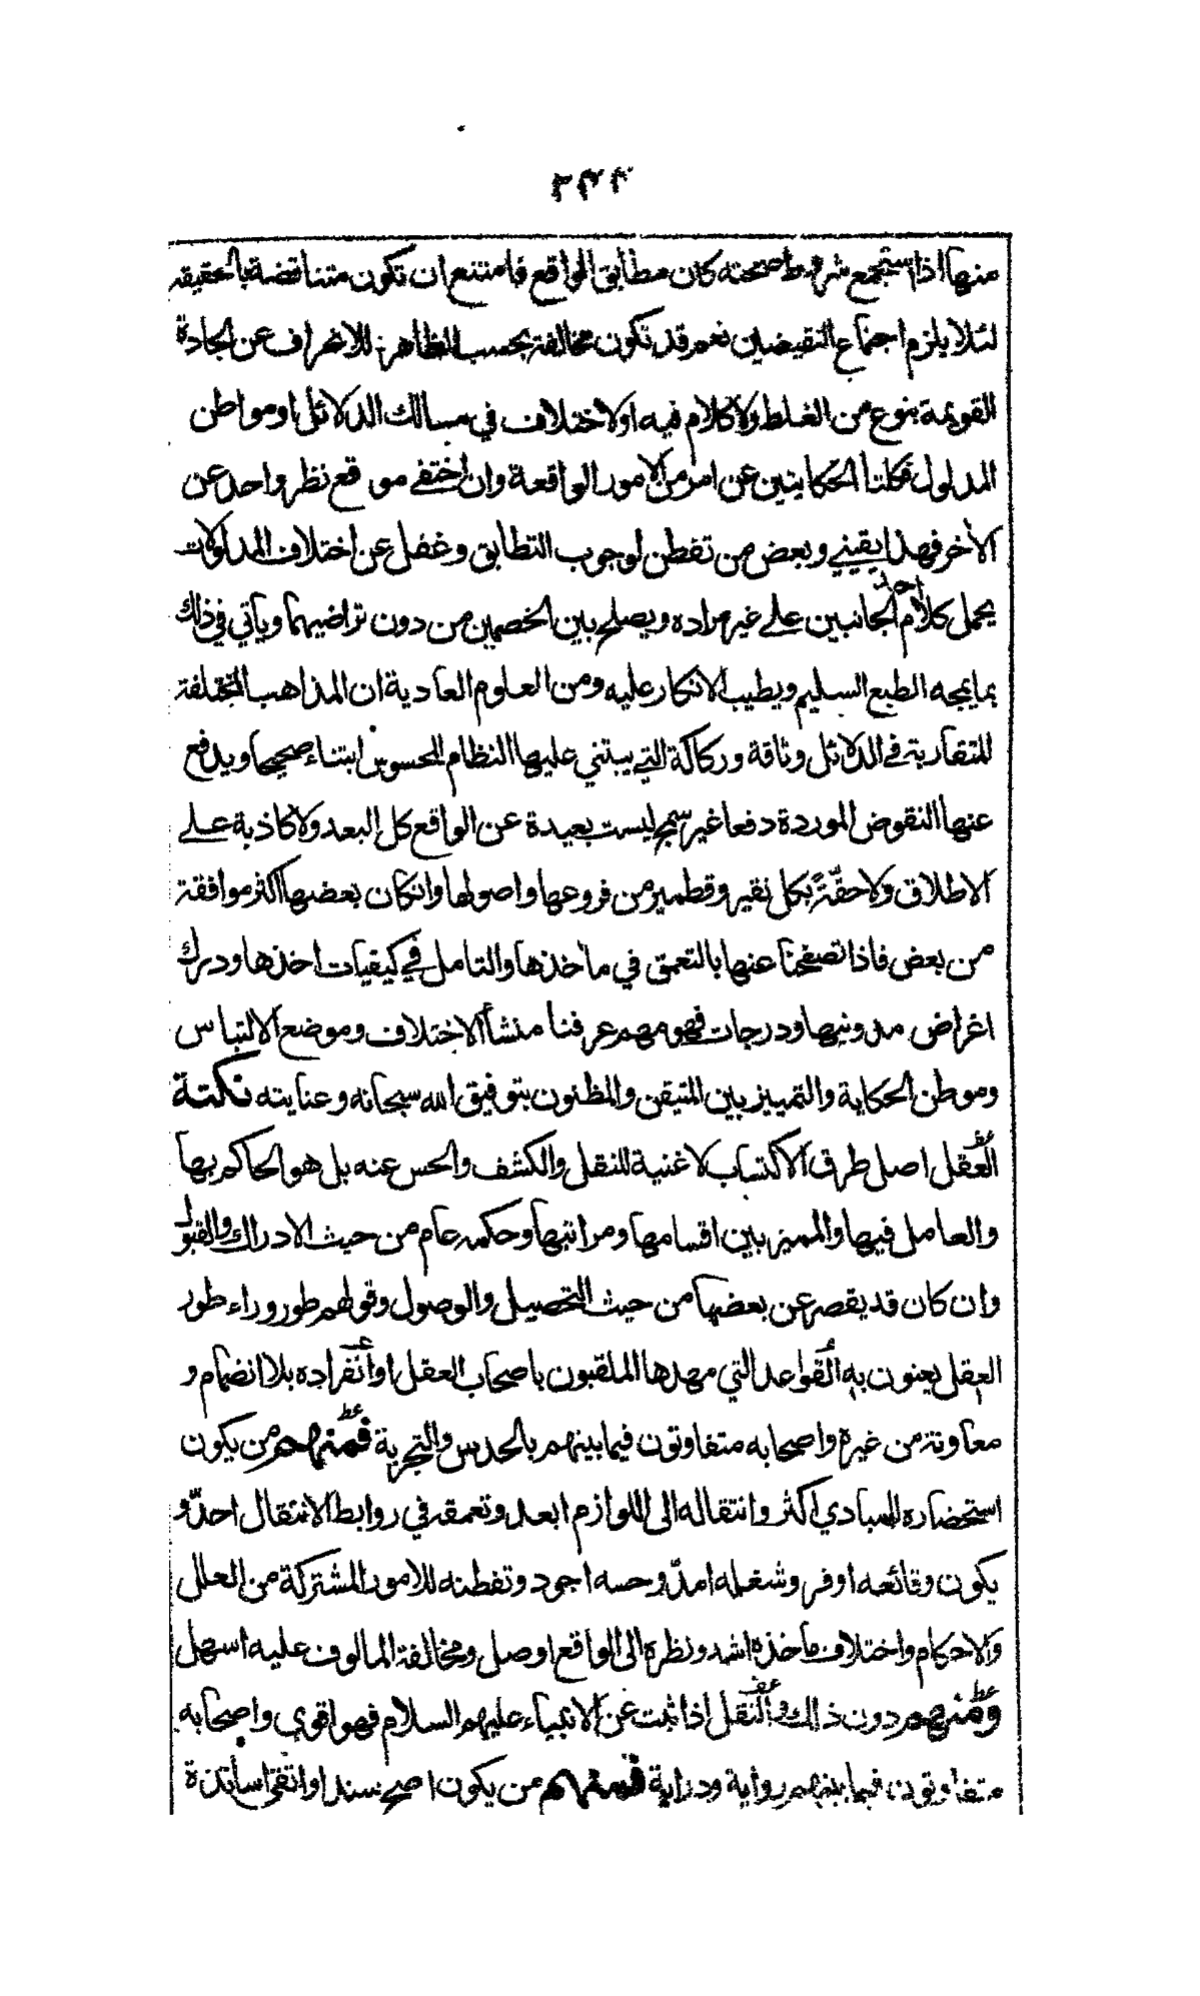 منها اذا استجمع شروط صحته كان مطابق الواقع فامتنع ان تكون متناقضة بالحقيقة
لئلا يلزم اجتماع النقيضين نعم قد تكون مخالفة بحسب الظاهر للانحراف عن الجادة
القويمة بنوع من الغلط ولا كلام فيه او لاختلاف في مسالك الدلائل او مواطن
المدلول فكلتا الحكايتين عن امر من الامور الواقعة وان اختفى موقع نظر واحد عن
الاخر فهذا يقيني وبعض من تفطن لوجوب التطابق وغفل عن اختلاف المدلولات
يحمل كلام احد الجانبين على غير مراده ويصلح بين الخصمين من دون تراضيهما وياتي في ذلك
بما يمجه الطبع السليم ويطيب الانكار عليه ومن العلوم العادية ان المذاهب المختلفة
المتقاربة في الدلائل وثاقة وركاكة التي يبتني عليها النظام المحسوس ابتناء صحيحا ويدفع
عنها النقوض الموردة دفعا غير سمج ليست بعيدة عن الواقع كل البعد ولا كاذبة على
الاطلاق ولا حقّةً بكل نقير وقطمير من فروعها واصولها وان كان بعضها اكثر موافقة
من بعض فاذا تصفحنا عنها بالتعمق في مآخذها والتامل في كيفيات اخذها ودرك
اغراض مدونيها ودرجات فهومهم عرفنا منشأ الاختلاف وموضع الالتباس
وموطن الحكاية والتمييز بين المتيقن والمظنون بتوفيق الله سبحانه وعنايته نكتة
العقل اصل طرق الاكتساب لا غنية للنقل والكشف والحس عنه بل هو الحاكم بها
والعامل فيها والمميز بين اقسامها ومراتبها وحكمه عام من حيث الادراك والقبول
وان كان قد يقصر عن بعضها من حيث التحصيل والوصول وقولهم طور وراء طور
العقل يعنون به القواعد التي مهدها الملقبون باصحاب العقل او انفراده بلا انضمام و
معاونة من غيره واصحابه متفاوتون فيما بينهم بالحدس والتجربة فمنهم من يكون
استحضاره للمبادي اكثر وانتقاله الى اللوازم ابعد وتعمقه في روابط الانتقال احدّ و
يكون وقائعه اوفر وشغله امدّ وحسه اجود وتفطنه للامور المشتركة من العلل
والاحكام واختلاف مآخذه اشد ونظره الى الواقع اوصل ومخالفة المالوف عليه اسهل
ومنهم دون ذلك والنقل اذا ثبت عن الانبياء عليهم السلام فهو اقوي واصحابه
متفاوتون فيما بينهم رواية ودراية فمنهم من يكون اصح سندا واتقى اساتذة